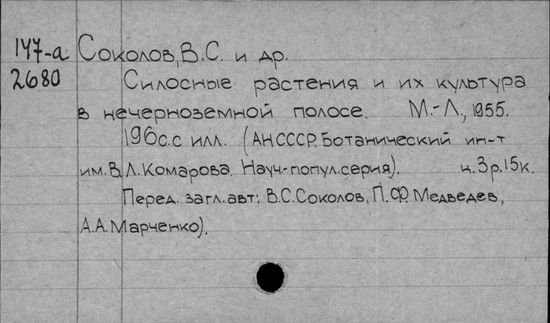 147-а Соколов, В.С. и др.
2680 Силосные растения и их культура
в нечерноземной полосе. М.-Л., 1955.
196с. с илл. (АН СССР. Ботанический ин-т
им. В.Л. Комарова. Науч-попул. серия). ц. 3р. 15к.
Перед. загл. авт: В.С. Соколов, П.Ф. Медведев,
А.А. Марченко).